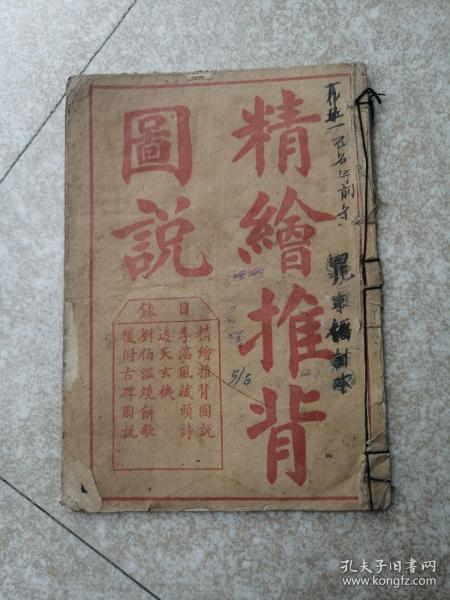 精繪推背
圖說
目錄
精繪推背圖說
李湻風藏頭詩
透天玄機
劉伯溫燒餅歌
後附古碑圖說
5/6
孔夫子旧书网
www.kongfz.com